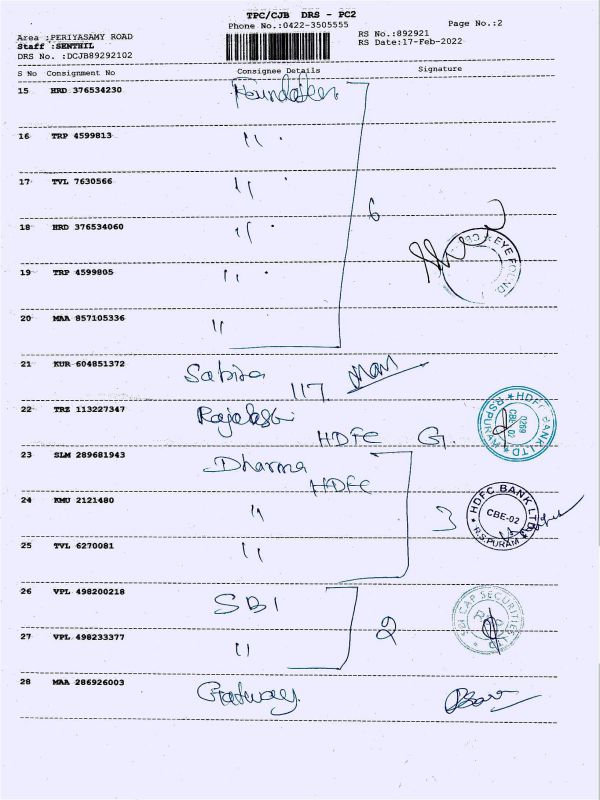 TPC/CJB DRS - PC2
Phone No.:0422-3505555
Page No.:2
Area :PERIYASAMY ROAD
Staff :SENTHIL
DRS No. :DCJB89292102
RS No.:892921
RS Date:17-Feb-2022
S No Consignment No Consignee Details Signature
15 HRD 376534230
16 TRP 4599813 "
17 TVL 7630566 "
18 HRD 376534060 "
6
19 TRP 4599805 "
EYE FOUND
20 MAA 857105336 "
21 KUR 604851372 Sabira 117
22 TRZ 113227347
HDFC G.
HDFC BANK LTD
R.S.PURAM
0269
CBE-02
23 SLM 289681943 Dharma
HDFC
24 KMU 2121480 "
3
HDFC BANK LTD
CBE-02
R.S.PURAM
25 TVL 6270081 "
26 VPL 498200218 SBI
2
SBI CAP SECURITIES LTD
27 VPL 498233377 "
28 MAA 286926003 Gateway